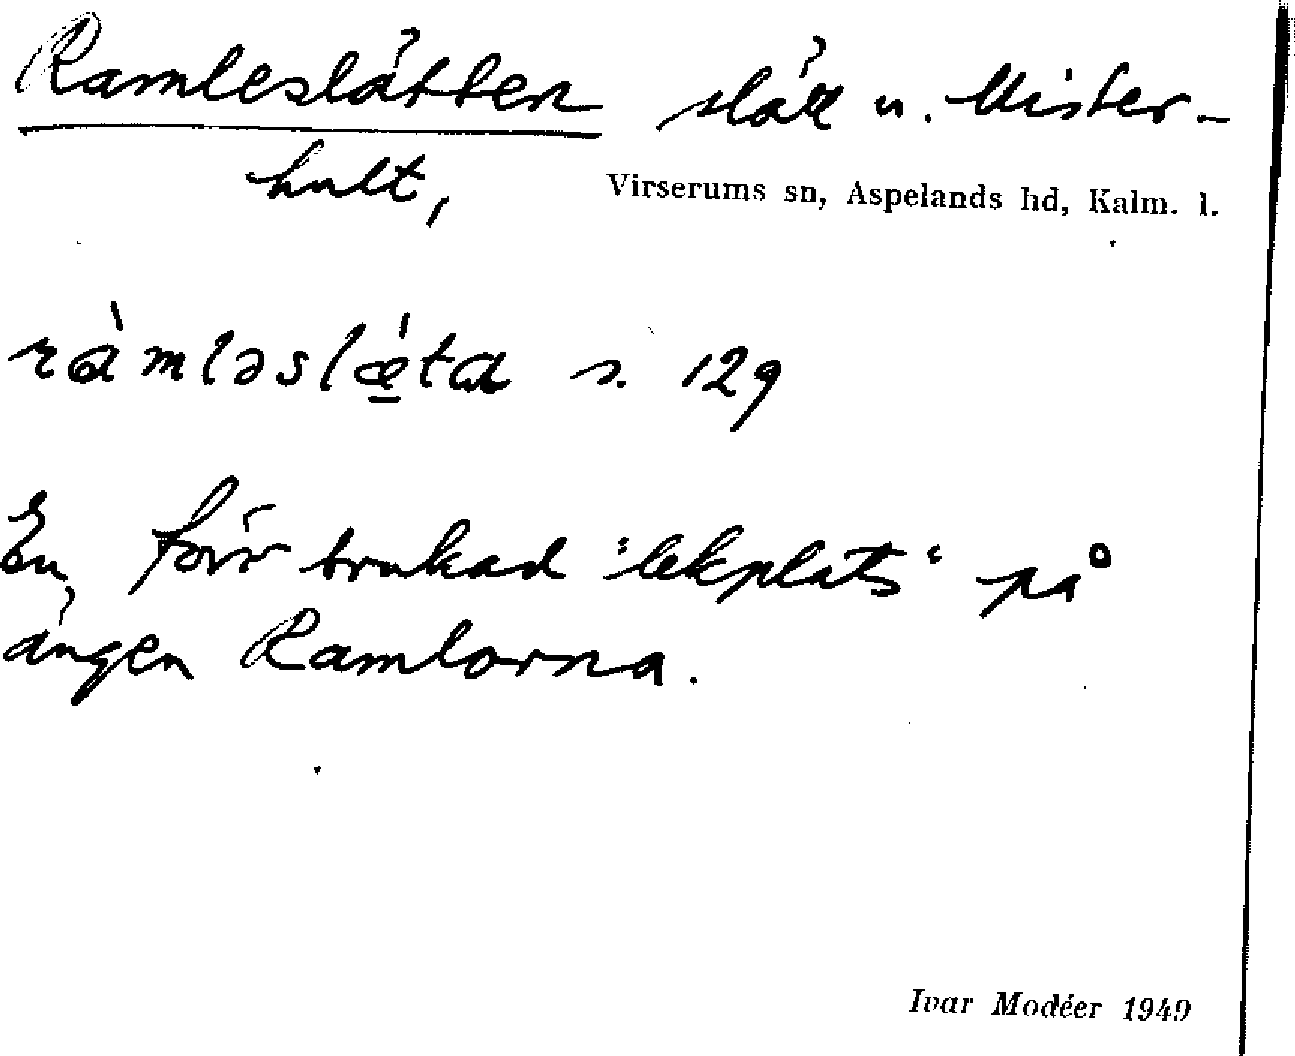 Ramleslätten slätt u. Mister-
hult,
Virserums sn, Aspelands hd, Kalm. l.
ràmləslǽta s. 129
En förr brukad "lekplats" på
ängen Ramlorna.
Ivar Modéer 1949